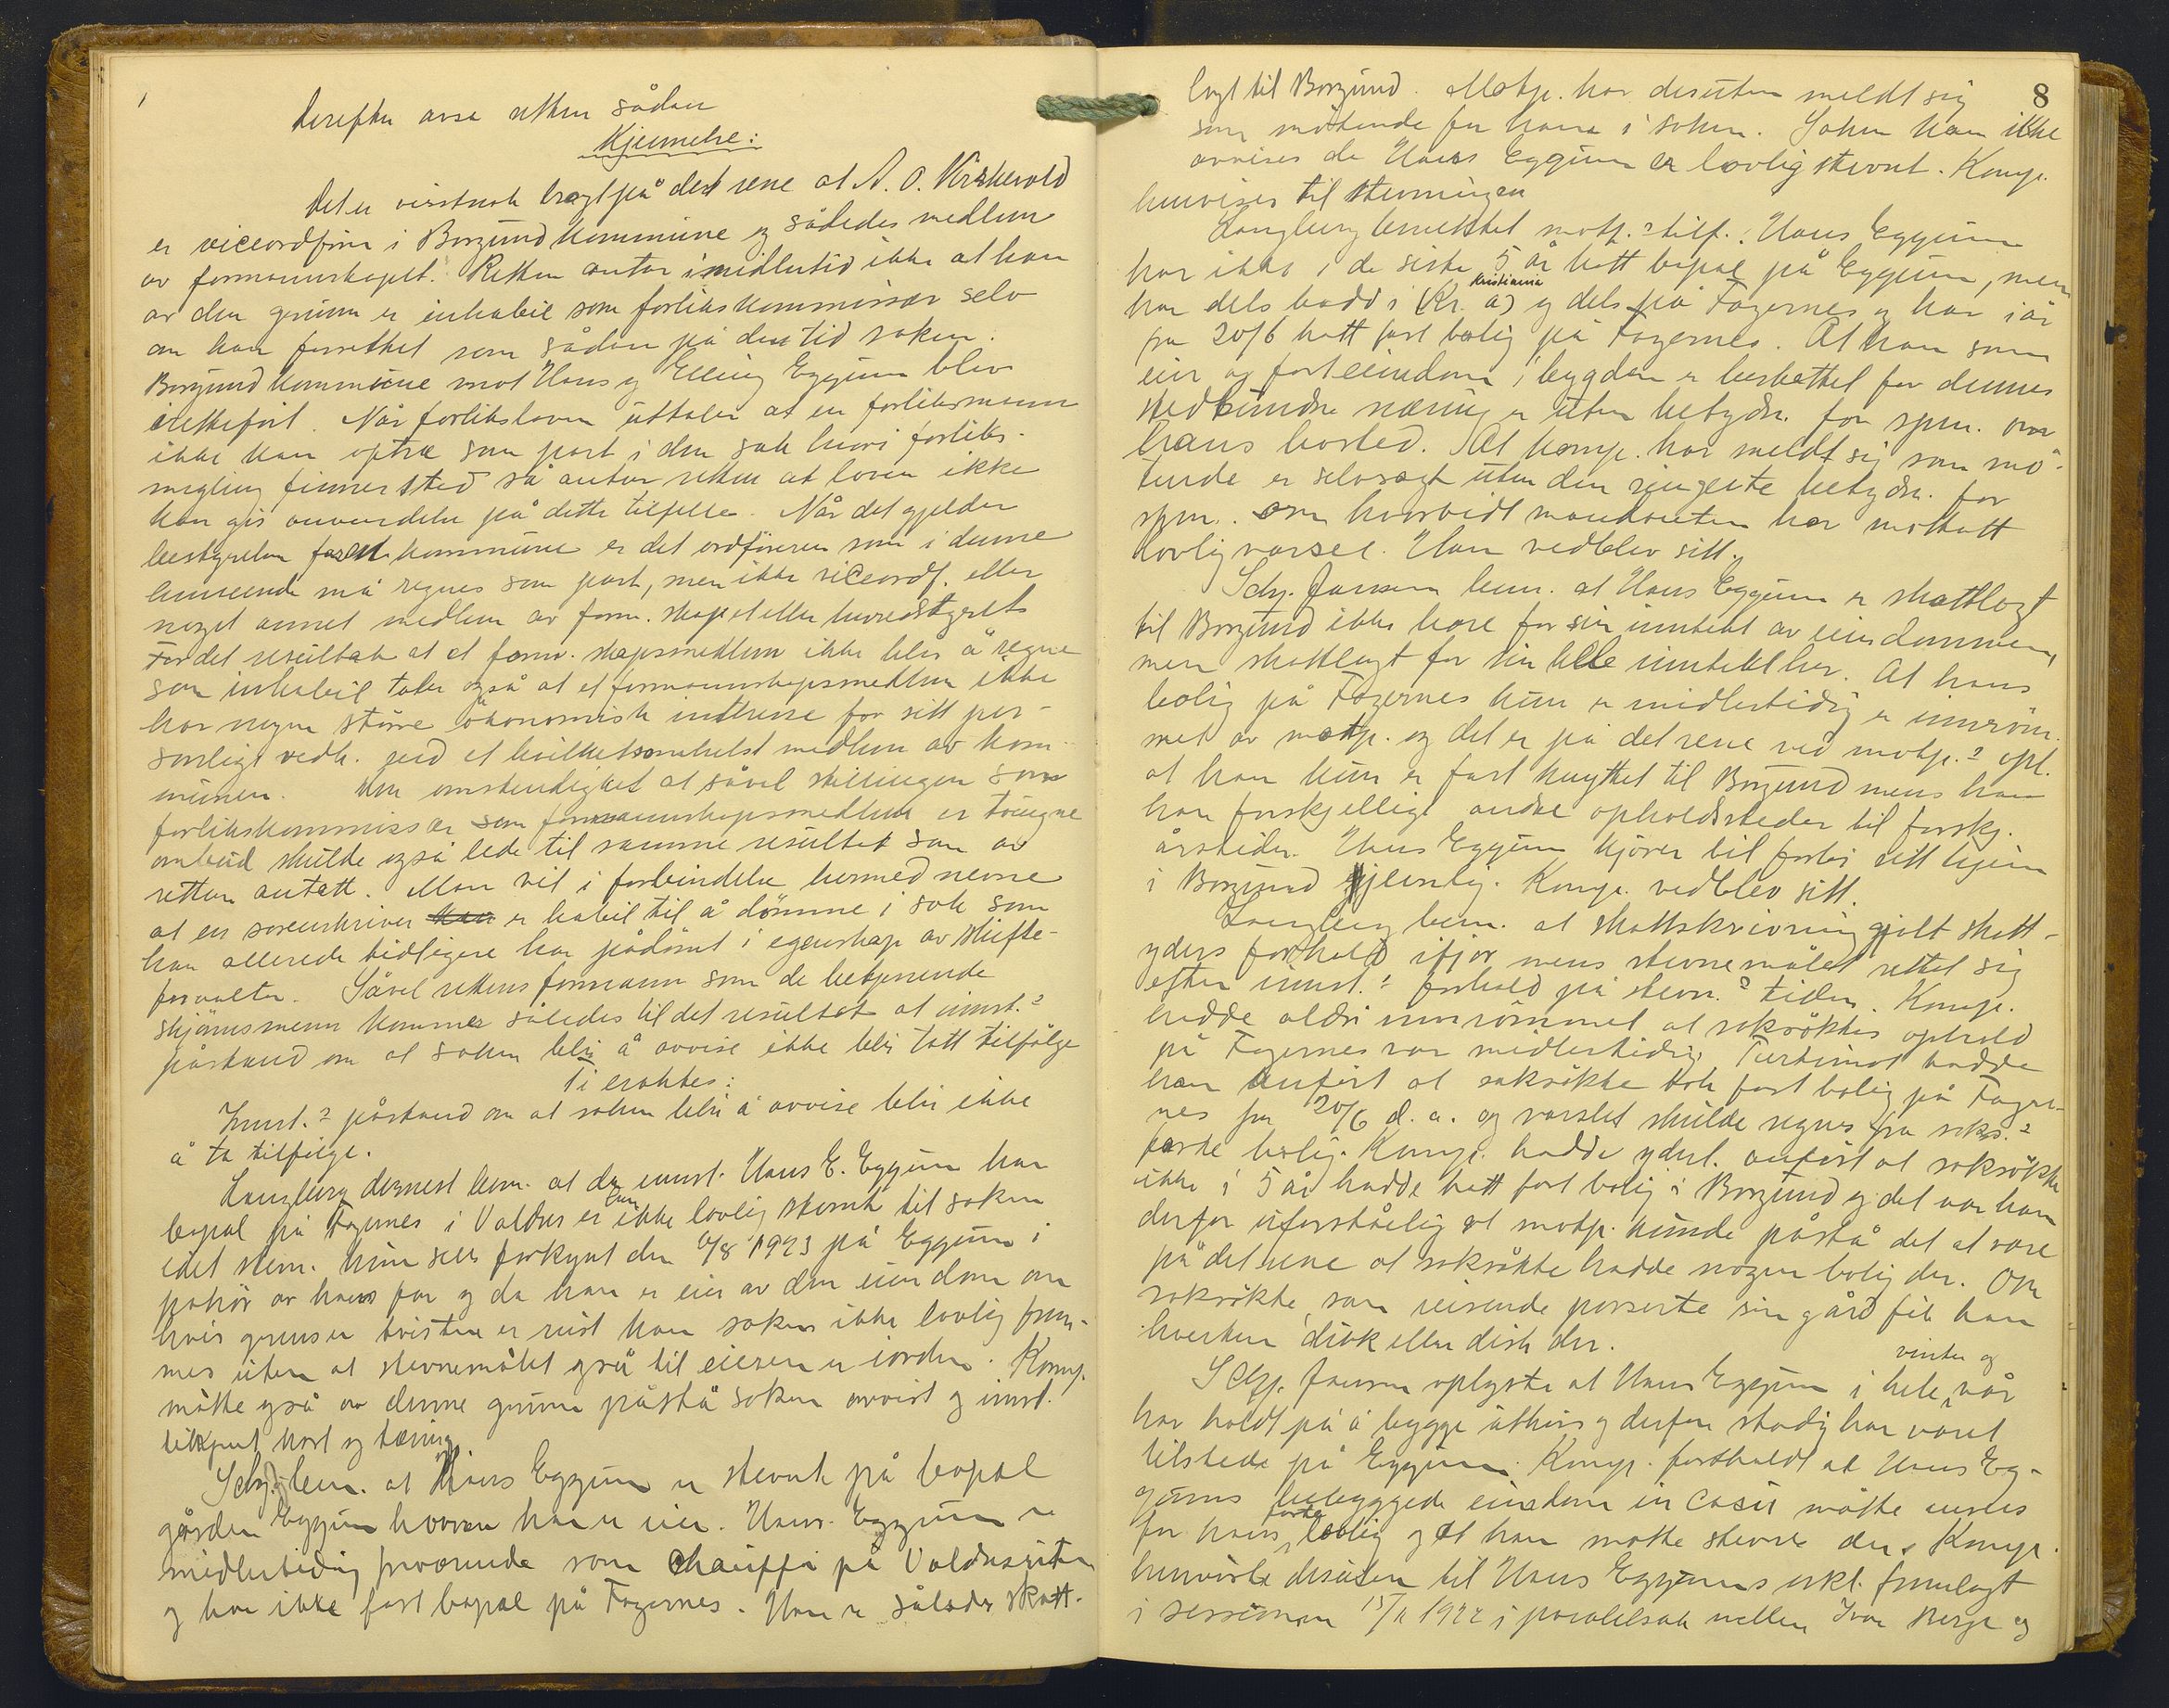 Derefter avsa retten sådan
Kjennelse:
Det er visstnok bragt på det rene at A. O. Kirkevold
er viceordfører i Borgund kommune og således medlem
av formannskapet. Retten antar imidlertid ikke at han
av den grunn er inhabil som forlikskommissær selv
om han forrettet som sådan på den tid saken
Borgund kommune mot Hans og Elling Eggum blev
iretteført. Når forliksloven uttaler at en forliksmann
ikke kan optræ som part i den sak hvori forliks-
megling finner sted så antar retten at loven ikke
kan gis anvendelse på dette tilfelle. Når det gjelder
bestyrelsen for en kommune er det ordføreren som i denne
henseende må regnes som part, men ikke viceordf. eller
noget annet medlem av form.skapet eller herredstyret
For det resultat at et form.skapsmedlem ikke blir å regne
som inhabil taler også at et formannskapsmedlem ikke
har nogen større økonomisk interesse for sitt per-
sonlige vedk. end et hvilketsomhelst medlem av kom-
munen. Den omstendighet at såvel stillingen som
forlikskommissær som formannskapsmedlem er tvungne
ombud skulde også lede til samme resultat som av
retten antatt. Man vil i forbindelse hermed nevne
at en sorenskriver kan er habil til å dømme i sak som
han allerede tidligere har pådømt i egenskap av skifte-
forvalter. Såvel rettens formann som de betjenende
skjønsmenn kommer således til det resultat at innst.s
påstand om at saken blir å avvise ikke blir tatt tilfølge
Ti eraktes:
Innst.s påstand om at saken blir å avvise blir ikke
å ta tilfølge.
Langberg dernest bem. at da innst. Hans E. Eggum har
bopæl på Fagernes i Valdres er han ikke lovlig stevnt til saken
idet stevn. kun sees forkynt den 6/8 1923 på Eggum i
påhør av hans far og da han er eier av den eiendom om
hvis grenser tvisten er reist kan saken ikke lovlig frem-
mes uten at stevnemålet også til eieren er iorden. Komp.
måtte også av denne grunn påstå saken avvist og innst.
tilkjent kost og tæring
Schj. bem. at Hans Eggum er stevnt på bopæl
gården Eggum hvorav han er eier. Hans Eggum er
midlertidig fraværende som chauffør på Valdresruten
og har ikke fast bopæl på Fagernes. Han er således skatt-
8
lagt til Borgund. Motp. har desuten meldt sig
som møtende for ham i saken. Saken kan ikke
avvises da Hans Eggum er lovlig stevnt. Komp.
henviser til stevningen
Langberg benektet motp.s tilf. Hans Eggum
har ikke i de siste 5 år hatt bopæl på Eggum, men
har dels bodd i (Kr. a) Kristiania og dels på Fagernes og har i år
fra 20/6 hatt fast bolig på Fagernes. At han som
eier av fast eiendom i bygden er beskattet for dennes
stedbundne næring er uten betydn. for spm. om
hans bosted. At komp. har meldt sig som mø-
tende er selvsagt uten den ringeste betydn. for
spm. om hvorvidt mandanten har mottatt
lovlig varsel. Han vedblev sitt.
Schj. Jansen bem. at Hans Eggum er skattlagt
til Borgund ikke bare for sin inntekt av eiendommen,
men skattlagt for sin hele inntekt her. At hans
bolig på Fagernes kun er midlertidig er innrøm-
met av motp. og det er på det rene ved motp.s opl.
at han kun er fast knyttet til Borgund mens han
har forskjellige andre opholdssteder til forskj.
årstider. Hans Eggum kjører bil forbi sitt hjem
i Borgund jevnlig. Komp. vedblev sitt.
Langberg bem. at skattskrivning gjelt skatt-
yders forhold ifjor mens stevnemålet rettet sig
efter innst.s forhold på stevn.s tiden. Komp.
hadde aldri innrømmet at saksøktes ophold
på Fagernes var midlertidig. Tvertimot hadde
han anført at saksøkte tok fast bolig på Fager-
nes fra 20/6 d. a. og varslet skulde regnes fra saks.s
faste bolig. Komp. hadde yderl. anført at saksøkte
ikke i 5 år hadde hatt fast bolig i Borgund og det var ham
derfor uforståelig at motp. kunde påstå det at være
på det rene at saksøkte hadde nogen bolig der. Om
saksøkte som reisende passerte sin gård fik han
hverken disk eller dusk der.
Schj. Jansen oplyste at Hans Eggum i hele vinter og vår
har holdt på å bygge uthus og derfor stadig har vært
tilstede på Eggum. Komp. fastholdt at Hans Eg-
gums bebyggede eiendom in casu måtte ansees
for hans faste bolig og at han måtte stevnes der. Komp.
henviste desuten til Hans Eggums erkl. fremlagt
i sesjonen 15/11 1922 i paralelsak mellem Ivar Berge og